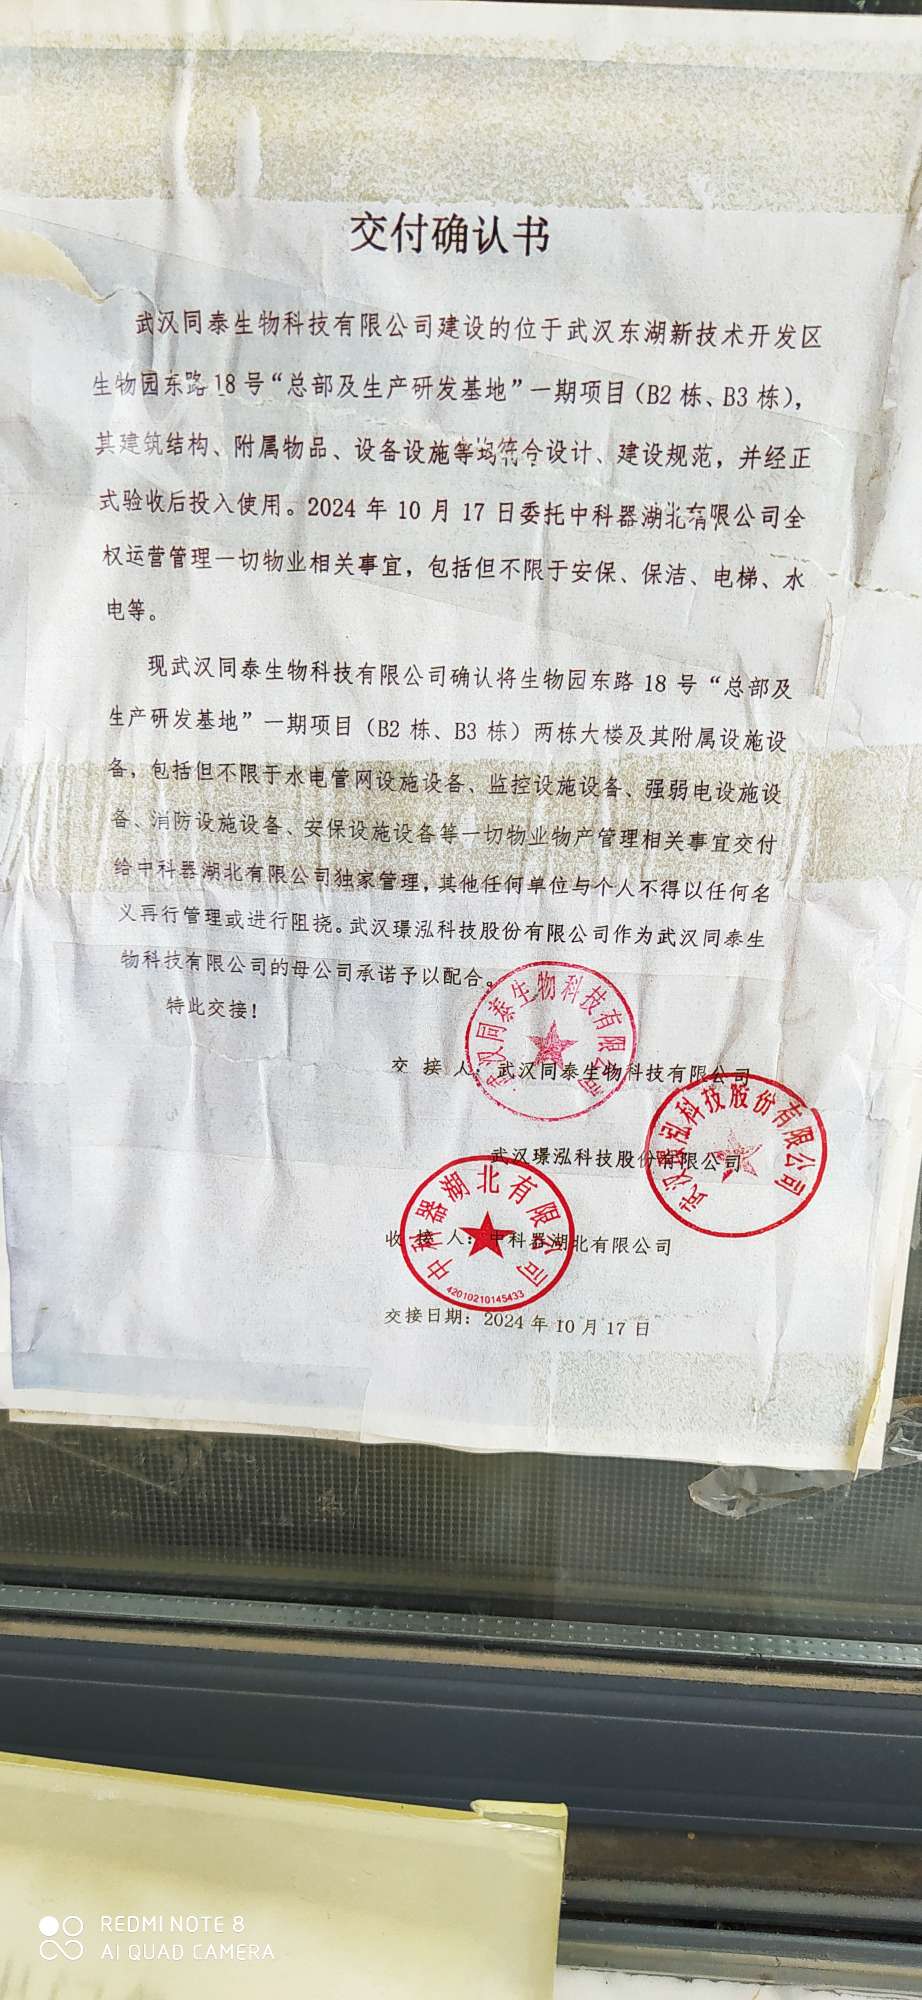 交付确认书
武汉同泰生物科技有限公司建设的位于武汉东湖新技术开发区
生物园东路18号“总部及生产研发基地”一期项目（B2栋、B3栋），
其建筑结构、附属物品、设备设施等均符合设计、建设规范，并经正
式验收后投入使用。2024年10月17日委托中科器湖北有限公司全
权运营管理一切物业相关事宜，包括但不限于安保、保洁、电梯、水
电等。
现武汉同泰生物科技有限公司确认将生物园东路18号“总部及
生产研发基地”一期项目（B2栋、B3栋）两栋大楼及其附属设施设
备，包括但不限于水电管网设施设备、监控设施设备、强弱电设施设
备、消防设施设备、安保设施设备等一切物业物产管理相关事宜交付
给中科器湖北有限公司独家管理，其他任何单位与个人不得以任何名
义再行管理或进行阻挠。武汉璟泓科技股份有限公司作为武汉同泰生
物科技有限公司的母公司承诺予以配合。
特此交接！
武汉同泰生物科技有限公司
交接人：武汉同泰生物科技有限公司
武汉璟泓科技股份有限公司
武汉璟泓科技股份有限公司
中科器湖北有限公司
收接人：中科器湖北有限公司
42010210145433
交接日期：2024年10月17日
REDMI NOTE 8
AI QUAD CAMERA